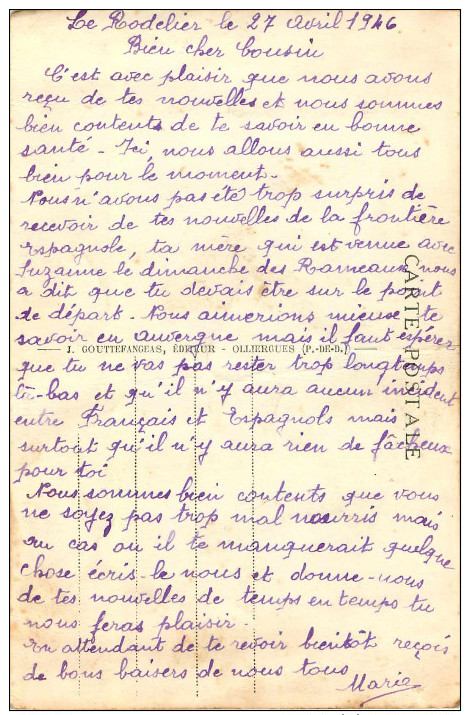 Le Rodelier le 27 Avril 1946
Bien cher Cousin
C'est avec plaisir que nous avons
reçu de tes nouvelles et nous sommes
bien contents de te savoir en bonne
santé - Ici, nous allons aussi tous
bien pour le moment.
Nous n'avons pas été trop surpris de
recevoir de tes nouvelles de la frontière
Espagnole, ta mère qui est venue avec
Suzanne le dimanche des Rameaux nous
a dit que tu devais être sur le point
de départ. Nous aimerions mieux te
savoir en auvergne mais il faut espérer
que tu ne vas pas rester trop longtemps
là-bas et qu'il n'y aura aucun incident
entre Français et Espagnols mais
surtout qu'il n'y aura rien de fâcheux
pour toi
Nous sommes bien contents que vous
ne soyez pas trop mal nourris mais
au cas ou il te manquerait quelque
chose écris-le nous et donne-nous
de tes nouvelles de temps en temps tu
nous feras plaisir.
En attendant de te revoir bientôt reçois
de bons baisers de nous tous
Marie
CARTE POSTALE
J. GOUTTEFANGEAS, ÉDITEUR - OLLIERGUES (P.-DE-D.)